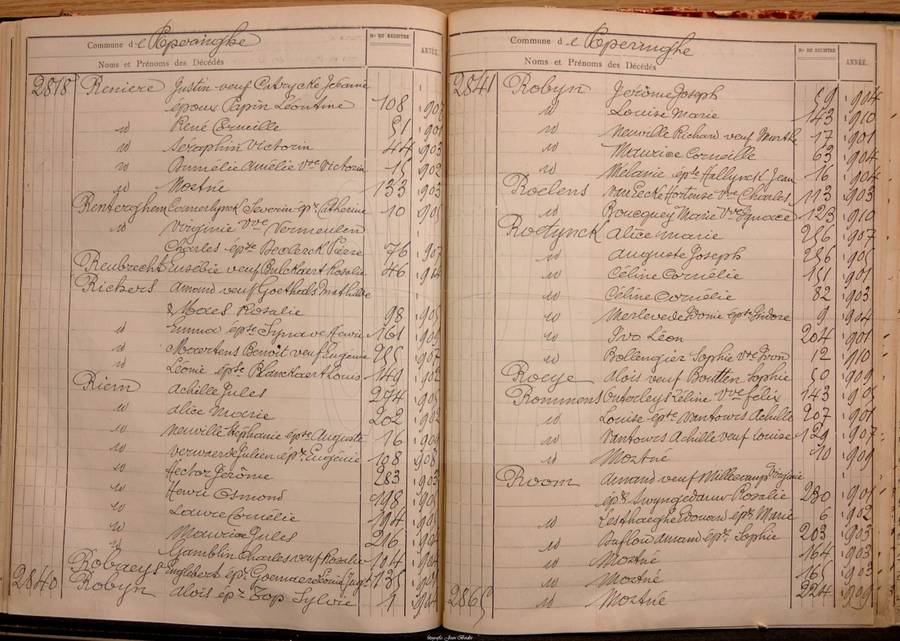 Commune d'e Poperinghe
Nº DU REGISTRE
ANNÉE.
Noms et Prénoms des Décédés
2818 Reniere Justin veuf Jeanne
époux Papin Léontine 108 1902
id René Corneille 51 1901
id Séraphin Victorin 44 1903
id Aurélie Vve Victorin 15 1902
id Mortné 133 1903
Renterghem Severin épx Catherine 10 1901
id Virginie Vve Vermeulen
Charles épx Bedlerck Pierre 76 1907
Reubrecht Eusébie veuf Bulckaert Rosalie 46 1904
Rickers Amand veuf Goethals Mathilde
& Maes Rosalie 98 1905
id Emma épse Synave Henri 161 1909
id Maertens Benoit veuf Eugenie 255 1907
id Léonie épse Blanckaert Louis 149 1902
Riem Achille Jules 274 1905
id Alice Marie 202 1902
id Neuville Stéphanie épse Auguste 16 1904
id Vervaerde Julien épx Eugénie 108 1908
id Hector Jérôme 283 1903
id Henri Osmond 198 1901
id Laure Cornélie 194 1901
id Maurice Jules 216 1904
id Gamblin Charles veuf Rosalie 104 1904
Robaeys Englebert épx 135
2840 Robyn Aloïs épx Top Sylvie 1 1904
Commune d'e Poperinghe
Nº DU REGISTRE
ANNÉE.
Noms et Prénoms des Décédés
2841 Robyn Jérôme Joseph 59 1904
id Louise Marie 143 1910
id Neuville Richard veuf Marthe 17 1901
id Maurice Corneille 63 1904
id Mélanie épse Hallynck Jean 16 1904
Roelens Van Eecke Hortense Vve Charles 113 1903
id Roucquey Marie Vve Ignace 123 1910
Rodynck Alice Marie 256 1907
id Auguste Joseph 256 1905
id Céline Cornélie 151 1901
id Céline Cornélie 82 1903
id Merlevede Sidonie épse Isidore 9 1904
id Ivo Léon 204 1901
id Bollengier Sophie Vve Ivon 12 1910
Roeye Aloïs veuf Boutten Sophie 50 1909
Rommens Outerleys Céline Vve Félix 143 1905
id Louise épse Vantours Achille 207 1901
id Vantours Achille veuf Louise 129 1907
id Mortné 70 1909
Room Amand veuf Millecamp Virginie
épx Wyngedauw Rosalie 230 1901
id Lesthaeghe Edouard épx Marie 6 1902
id Baflou Amand épx Sophie 203 1903
id Mortné 164 1903
id Mortné 165 1903
2865 id Mortné 224 1909
fotografie Jean Bodet